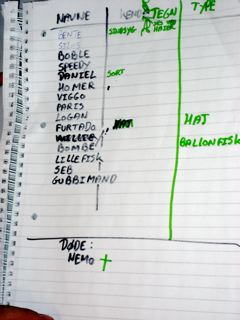 NAVNE KENDETEGN TYPE
BENTE SINDSYG
SILAS
BOBLE
SPEEDY
DANIEL SORT
HOMER
VIGGO
PARIS
LOGAN HAJ
FURTADO HAJ
BALLONFISK
BOMBE
LILLEFISK
SEB
GUBBIMAND
DØDE:
NEMO †